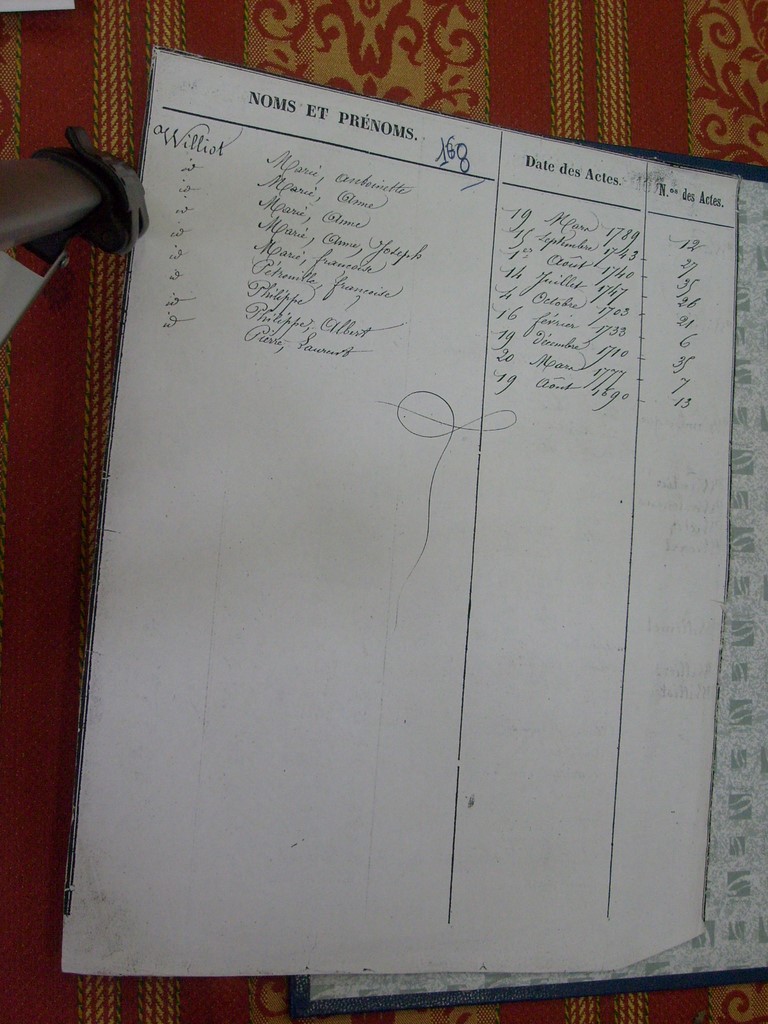 NOMS ET PRÉNOMS. 168 Date des Actes. N.os des Actes.
Williot Marie, Antoinette 19 Mars 1789 12
id Marie, Anne 15 Septembre 1743 27
id Marie, Anne 1er Août 1740 35
id Marie, Anne, Joseph 14 Juillet 1747 26
id Marie, françoise 4 Octobre 1703 21
id Pétronille, françoise 16 février 1733 6
id Philippe 19 décembre 1710 35
id Philippe, Albert 20 Mars 1777 7
id Pierre, Laurent 19 Août 1690 13